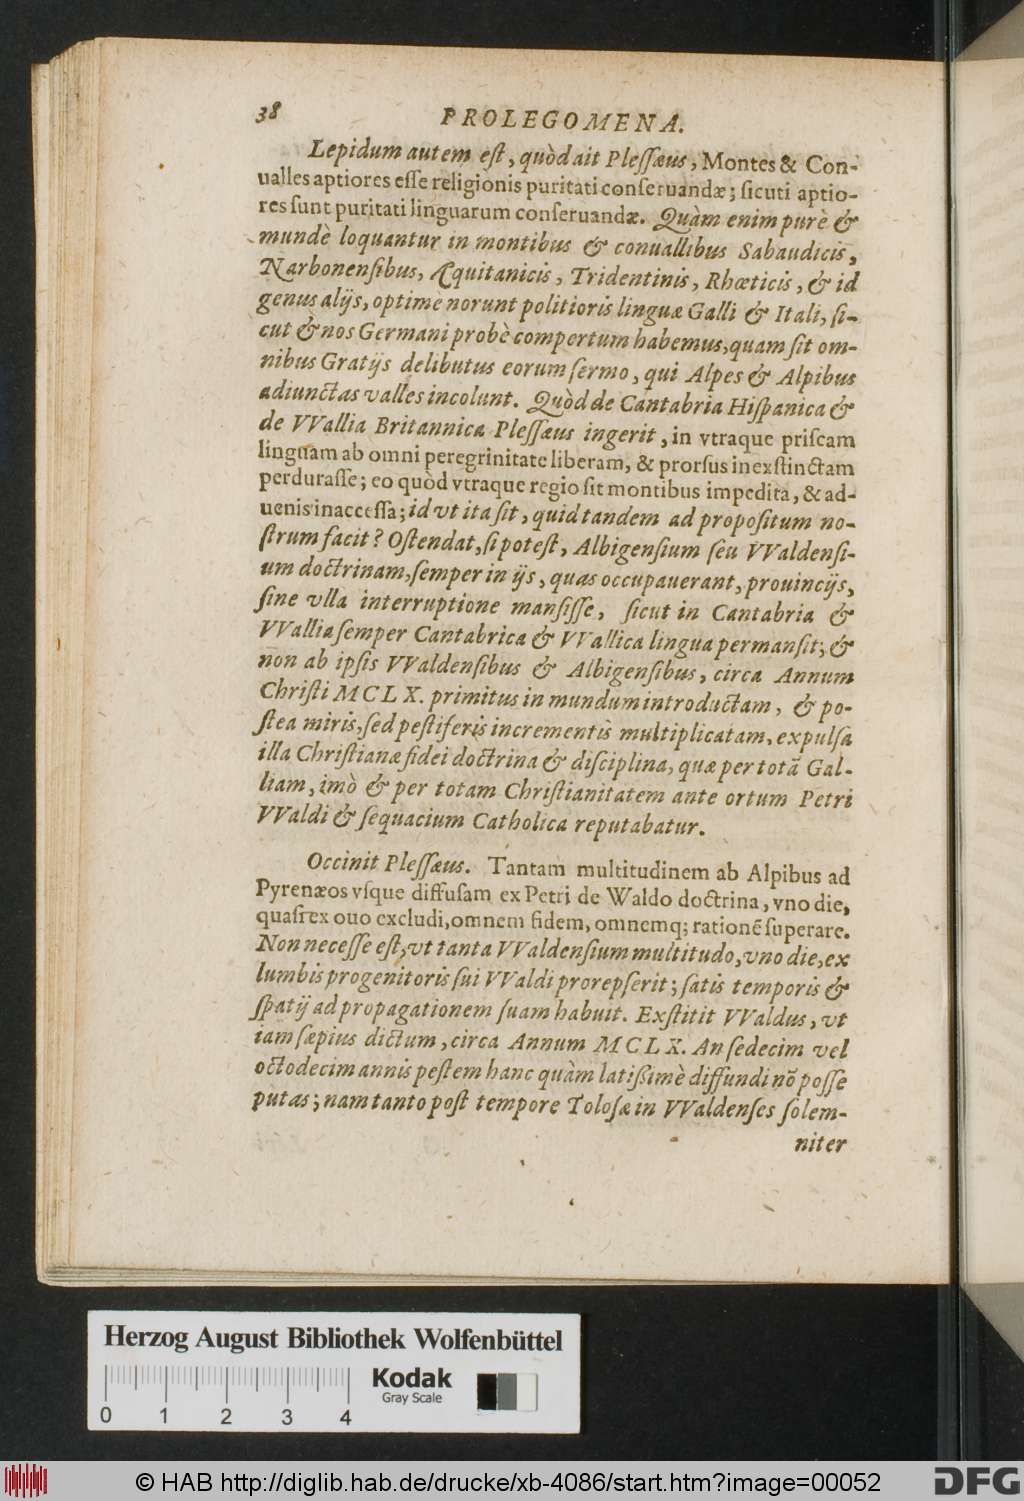 38 PROLEGOMENA.
Lepidum autem eſt, quòd ait Pleſſæus, Montes & Con-
ualles aptiores eſſe religionis puritati conſeruandæ; ſicuti aptio-
res ſunt puritati linguarum conſeruandæ. Quàm enim purè &
mundè loquantur in montibus & conuallibus Sabaudicis,
Narbonenſibus, Æquitanicis, Tridentinis, Rhœticis, & id
genus alijs, optimè norunt politioris linguæ Galli & Itali, ſi-
cut & nos Germani probè compertum habemus, quam ſit om-
nibus Gratijs delibutus eorum ſermo, qui Alpes & Alpibus
adiunctas valles incolunt. Quòd de Cantabria Hiſpanica &
de VVallia Britannica Pleſſæus ingerit, in vtraque priſcam
linguam ab omni peregrinitate liberam, & prorſus inexſtinctam
perduraſſe; eo quòd vtraque regio ſit montibus impedita, & ad-
uenis inacceſſa; id vt ita ſit, quid tandem ad propoſitum no-
ſtrum facit? Oſtendat, ſi poteſt, Albigenſium ſeu VValdenſi-
um doctrinam, ſemper in ijs, quas occupauerant, prouincijs,
ſine vlla interruptione manſiſſe, ſicut in Cantabria &
VVallia ſemper Cantabrica & VVallica lingua permanſit; &
non ab ipſis VValdenſibus & Albigenſibus, circa Annum
Chriſti MCLX. primitus in mundum introductam, & po-
ſtea miris, ſed peſtiferis incrementis multiplicatam, expulſa
illa Chriſtianæ fidei doctrina & diſciplina, quæ per totã Gal-
liam, imò & per totam Chriſtianitatem ante ortum Petri
VValdi & ſequacium Catholica reputabatur.
Occinit Pleſſæus. Tantam multitudinem ab Alpibus ad
Pyrenæos vſque diffuſam ex Petri de Waldo doctrina, vno die,
quaſi ex ouo excludi, omnem fidem, omnemq; rationẽ ſuperare.
Non neceſſe eſt, vt tanta VValdenſium multitudo, vno die, ex
lumbis progenitoris ſui VValdi prorepſerit; ſatis temporis &
ſpatij ad propagationem ſuam habuit. Exſtitit VValdus, vt
iam ſæpius dictum, circa Annum MCLX. An ſedecim vel
octodecim annis peſtem hanc quàm latißimè diffundi nõ poſſe
putas; nam tanto poſt tempore Toloſæ in VValdenſes ſolem-
niter
Herzog August Bibliothek Wolfenbüttel
Kodak
Gray Scale
0 1 2 3 4
© HAB http://diglib.hab.de/drucke/xb-4086/start.htm?image=00052
DFG